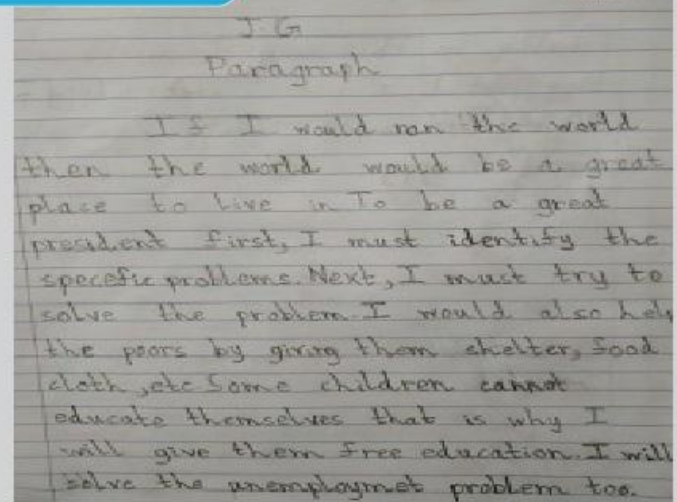 J.G
Paragraph
If I would ran the world
then the world would be a great
place to live in To be a great
president first, I must identify the
specefic problems. Next, I must try to
solve the problem. I would also help
the poors by giving them shelter, food
cloth, etc Some children cannot
educate themselves that is why I
will give them free education. I will
solve the unemploymet problem too.